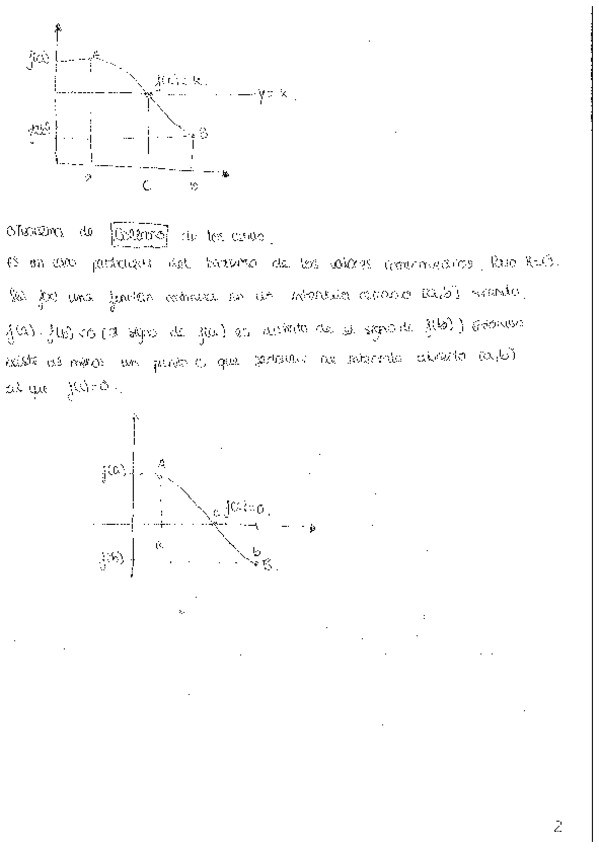 f(a) A
f(c)=k.
y=k.
f(b) B
a c b
Teorema de Bolzano de los ceros.
Es un caso particular del teorema de los valores intermedios. Para K=0.
Sea f(x) una función continua en un intervalo cerrado [a,b] siendo
f(a)·f(b)<0 (el signo de f(a) es distinto de el signo de f(b)) entonces
existe al menos un punto c, que pertenece al intervalo abierto (a,b)
tal que f(c)=0.
f(a) A
c f(c)=0.
a b
f(b) B.
2